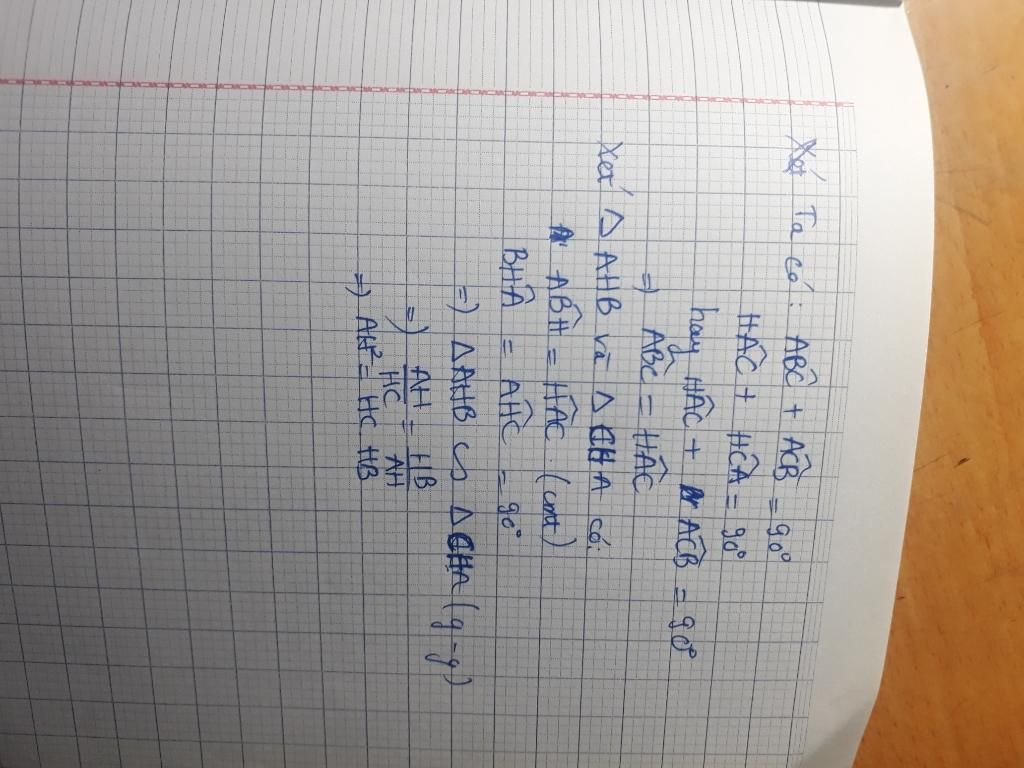 Ta có: ABC^ + ACB^ = 90°
HAC^ + HCA^ = 90°
hay HAC^ + ACB^ = 90°
=) ABC^ = HAC^
Xét Δ AHB và Δ CHA có:
ABH^ = HAC^. (cmt)
BHA^ = AHC^ = 90°
=) Δ AHB ∽ Δ CHA (g-g)
=) AH/HC = HB/AH
=) AH² = HC HB